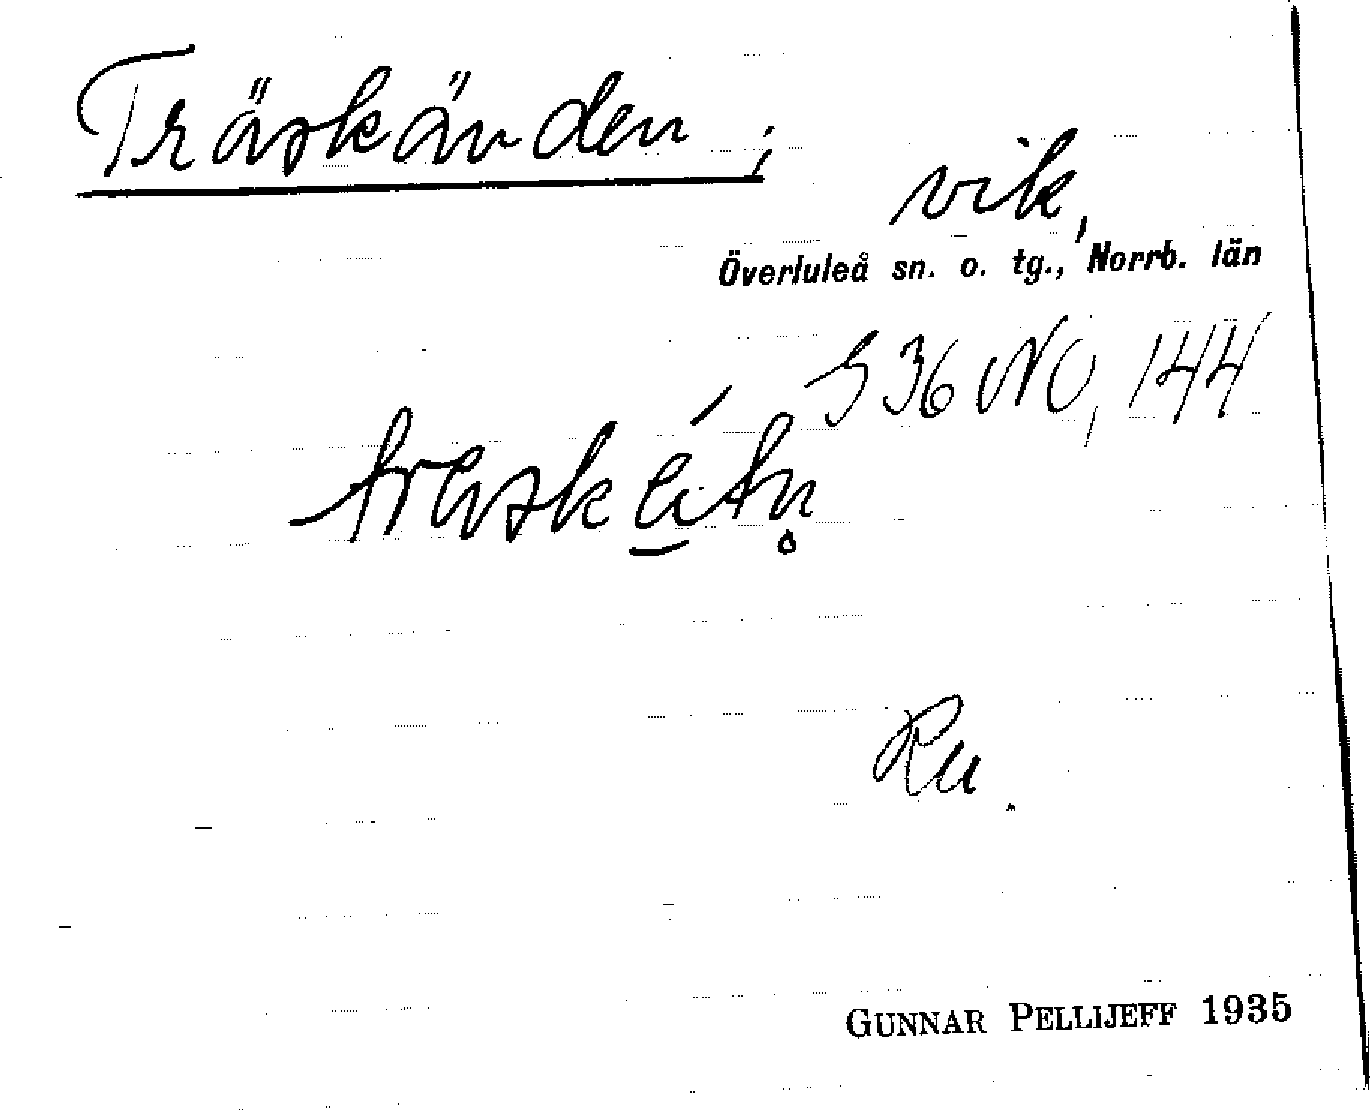 Träskänden ;
vik,
Överluleå sn. o. tg., Norrb. län
S 36 NO, 144
Ru.
GUNNAR PELLIJEFF 1935